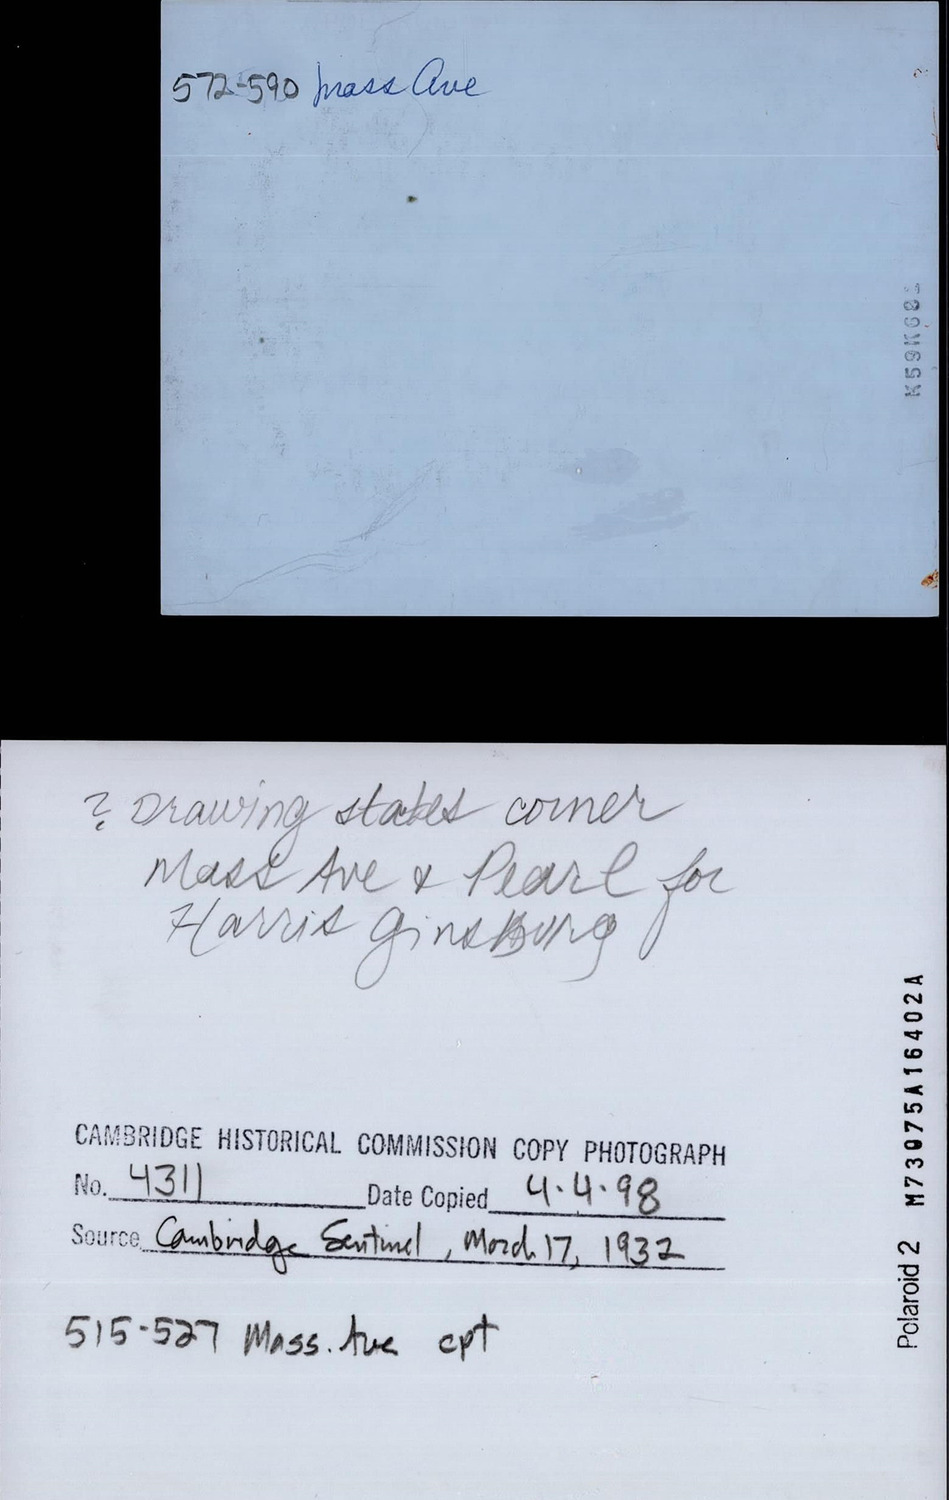 572-590 Mass Ave
? Drawing states corner
Mass Ave & Pearl for
Harris Ginsburg
CAMBRIDGE HISTORICAL COMMISSION COPY PHOTOGRAPH
No. 4311 Date Copied 4.4.98
Source Cambridge Sentinel, March 17, 1932
515-527 Mass. Ave cpt
M73075A16402A
Polaroid 2